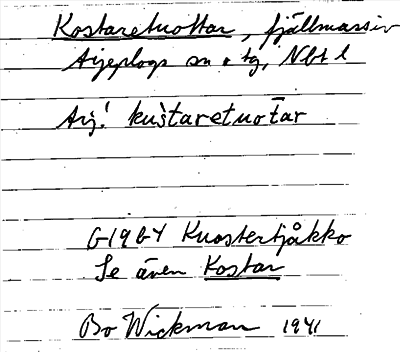 Kostaretuottar, fjällmassiv
Arjeplogs sn o tg, Nbt l
Arj! kuštaretuoṯar
G1964 Kuostertjåkko
Se även Kostar
Bo Wickman 1941